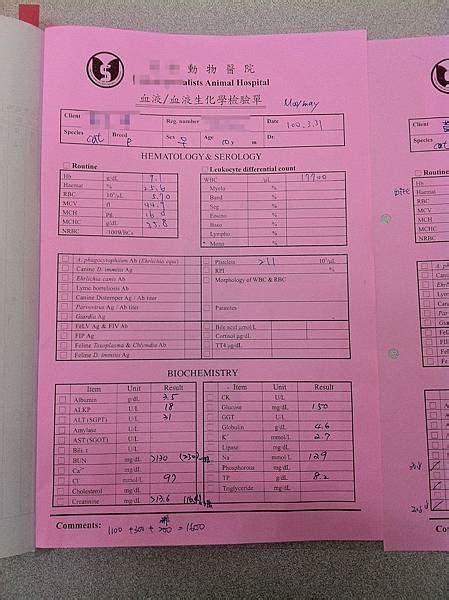 動物醫院
alists Animal Hospital
血液/血液生化學檢驗單 Maymay
Client Reg. number Date 100.3.31
Species cat Breed P Sex ♀ Age 10 y m Dr.
HEMATOLOGY & SEROLOGY
Routine
Hb g/dL 9.1
Haemat % 25.6
RBC 10⁶/μL 5.70
MCV fl 44.9
MCH pg 16.0
MCHC g/dL
NRBC -/100WBCs
Leukocyte differential count
WBC μL 17700
Myelo %
Band %
Seg %
Eosino %
Baso %
Lympho %
Mono %
A. phagocytophilum Ab (Ehrlichia equi)
Canine D. immitis Ag
Ehrlichia canis Ab
Lyme borreliosis Ab
Canine Distemper Ag / Ab titer
Parvovirus Ag / Ab titer
Giardia Ag
FeLV Ag & FIV Ab
FIP Ag
Feline Toxoplasma & Chlamydia Ab
Feline D. immitis Ag
Platelets >11 10³/μL
RPI %
Morphology of WBC & RBC
Parasites
Bile acid μmol/L
Cortisol μg/dL
TT4 μg/dL
BIOCHEMISTRY
Item Unit Result
Albumin g/dL 3.5
ALKP U/L 18
ALT (SGPT) U/L 31
Amylase U/L
AST (SGOT) U/L
Bili. t mg/dL
BUN mg/dL >130
Ca⁺⁺ mg/dL
Cl⁻ mmol/L 97
Cholesterol mg/dL
Creatinine mg/dL >13.6
Item Unit Result
CK U/L
Glucose mg/dL 150
GGT U/L
Globulin g/dL 4.6
K⁺ mmol/L 2.7
Lipase U/L
Na mmol/L 129
Phosphorous mg/dL
TP g/dL 8.2
Triglyceride mg/dL
Comments: 1100 +300 + 200 = 1600
Client
Species cat
Routine
Hb
Haemat
RBC
MCV
MCH
MCHC
NRBC